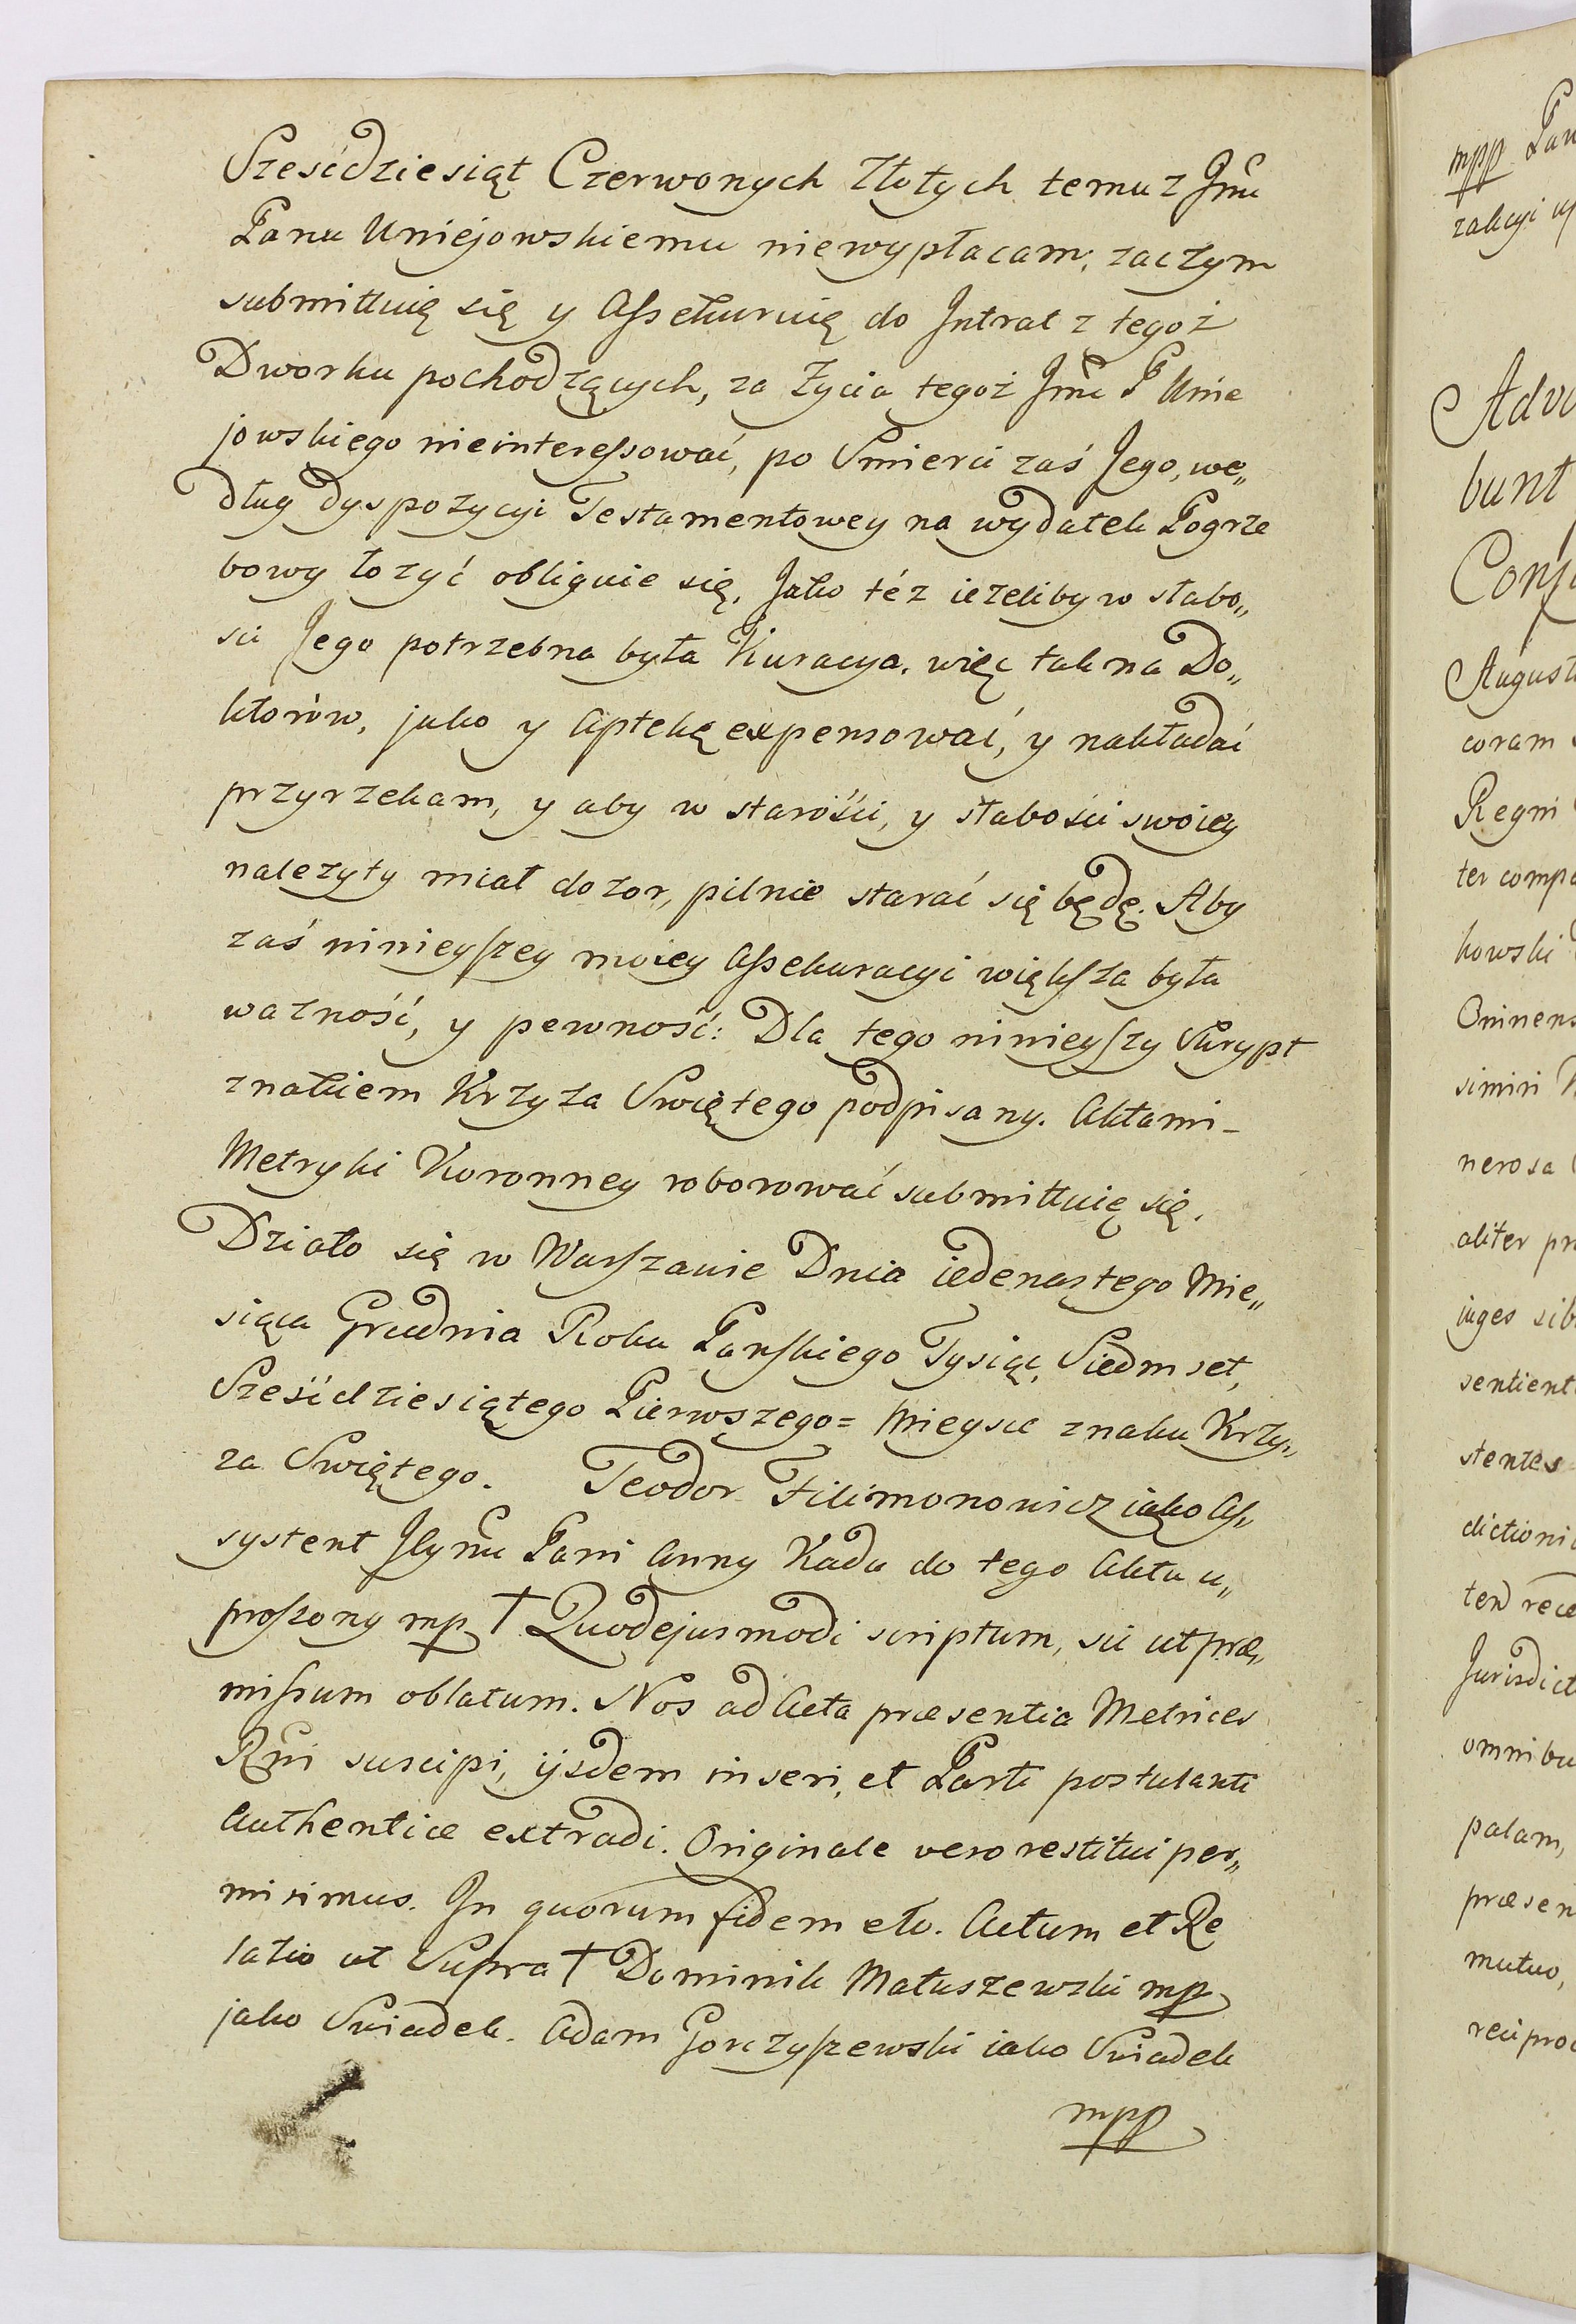 Sześćdziesiąt Czerwonych Złotych temuz Jmć
Panu Uniejowskiemu niewypłacam; zaczym
submittuię się y Assekuruię do Intrat z tegoż
Dworku pochodzących, za życia tegoż Jmć P Unie
jowskiego nieinteressować, po Smierci zaś Jego, we„
dług dyspozycyi Testamentowey na wydatek Pogrze
bowy łozyć obliguie się. Jako téz iezeliby w słabo„
sci Jego potrzebna była Kuracya. więc tak na Do„
ktorów, jako y Aptekę expensować, y nakładać
przyrzekam, y aby w starości, y słabości swoiey
nalezyty miał dozor, pilnie starać się będę. Aby
zaś ninieyszey moiey Assekuracyi większa była
wazność, y pewność: Dla tego ninieyszy Skrypt
znakiem Krzyza Swiętego podpisany. Aktami_
Metryki Koronney roborować submittuię się.
Działo się w Warszawie Dnia iedenastego Mie„
siąca Grudnia Roku Pańskiego Tysiąc, Siedmset,
Sześćdziesiątego Pierwszego= Mieysce znaku Krzy„
za Swiętego. Teodor Filimonowicz iako As„
systent Jeymć Pani Anny Kadu do tego Aktu u„
proszony mp † Quod ejusmodi scriptum, sic ut præ„
missum oblatum. Nos ad Acta præsentia Metrices
Rñi suscipi, ijsdem inseri, et Parti postulanti
Authentice extradi. Originale vero restitui per„
misimus. In quorum fidem etc. Actum et Re
latio ut Supra † Dominik Matuszewski mp
jako Swiadek. Adam Gorczyszewski iako Swiadek
mpp
mpp Pan
Advo
bunt
August
coram
Regni
ter compa
kowski
simiri
nerosa
aliter pr
juges sib
sentient
stentes
dictioni
Jurisdict
omnibu
palam,
præsen
mutuo,
recipro